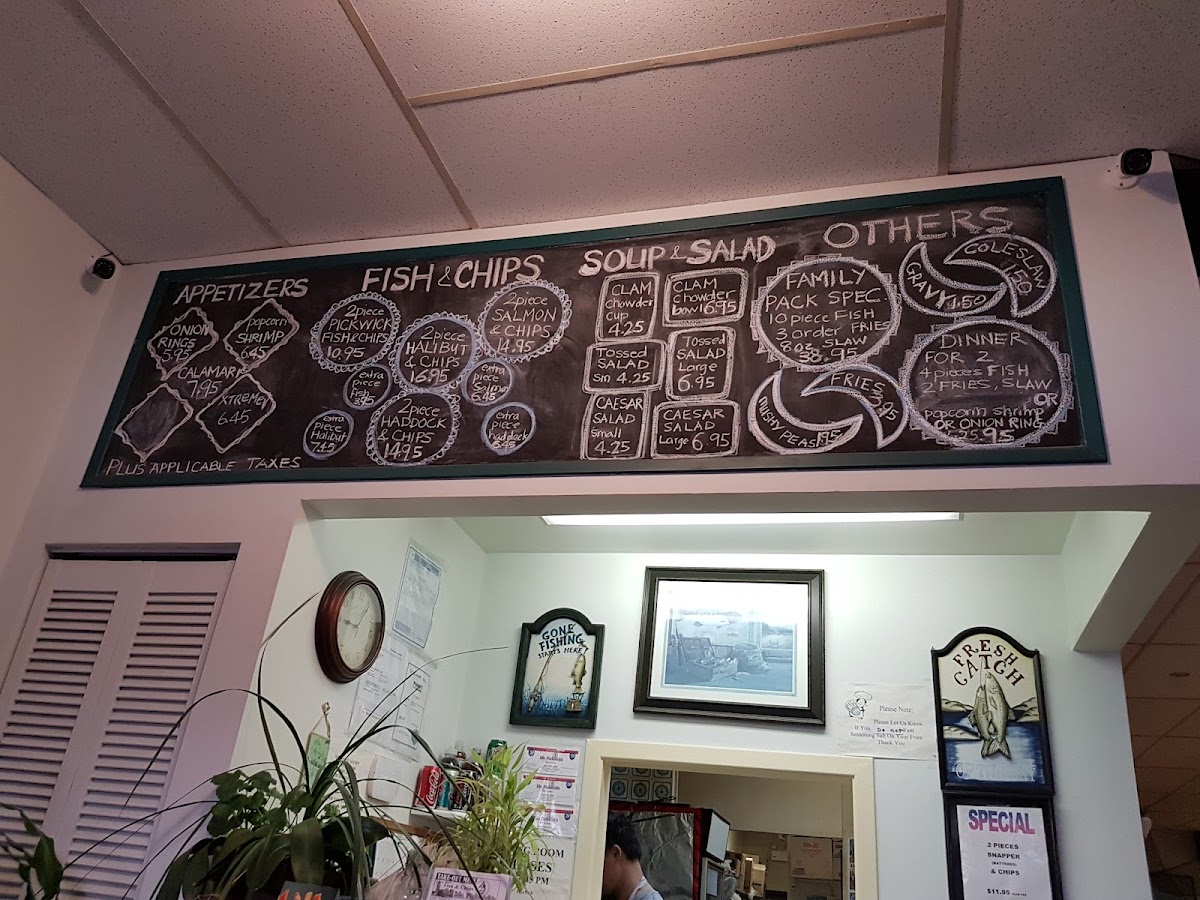 APPETIZERS
ONION
RINGS
5.95
popcorn
SHRIMP
6.45
CALAMARI
7.95
XTREME
6.45
PLUS APPLICABLE TAXES
FISH & CHIPS
2piece
PICKWICK
FISH&CHIPS
10.95
2piece
HALIBUT
& CHIPS
16.95
2piece
SALMON
& CHIPS
14.95
extra
piece
fish
extra
piece
Salmon
6.45
extra
piece
Halibut
7.45
2piece
HADDOCK
& CHIPS
14.95
extra
piece
haddock
SOUP & SALAD
CLAM
Chowder
Cup
4.25
CLAM
Chowder
bowl 6.95
Tossed
SALAD
Sm 4.25
Tossed
SALAD
Large
6.95
CAESAR
SALAD
Small
4.25
CAESAR
SALAD
Large 6.95
OTHERS
FAMILY
PACK SPEC.
10 piece FISH
3 order FRIES
8oz. SLAW
38.95
GRAVY 1.50
COLESLAW
1.50
MUSHY PEAS 1.95
FRIES
DINNER
FOR 2
4 pieces FISH
2 FRIES, SLAW
OR
popcorn shrimp
OR ONION RING
GONE
FISHING
STARTS HERE!
Please Note:
Please Let Us Know
If You Do not want
Seasoning Salt On Your Fries
Thank You
FRESH
CATCH
SPECIAL
2 PIECES
SNAPPER
(BATTERED)
& CHIPS
$11.95
Coca-Cola
TAKE-OUT MENU
Fish & Chips